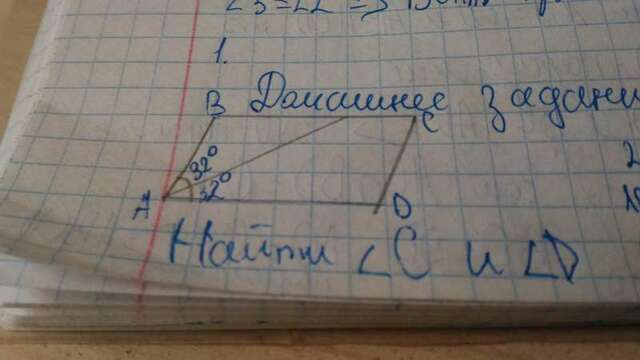 1.
Домашнее задани
B
C
32°
32°
A
D
Найти ∠C и ∠D